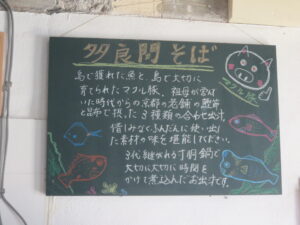 多良間そば
島で獲れた魚と、島で大切に
育てられたマクル豚、祖母が営ん
でいた時代からの京都の老舗の鰹節
と昆布で授った3種類の合わせ出汁
惜しみなくふんだんに使い出し
た素材の味を堪能してください。
3代継がれる丁羽鍋で
大切に大切に時間を
かけて煮込んだお出汁です。
マクル豚